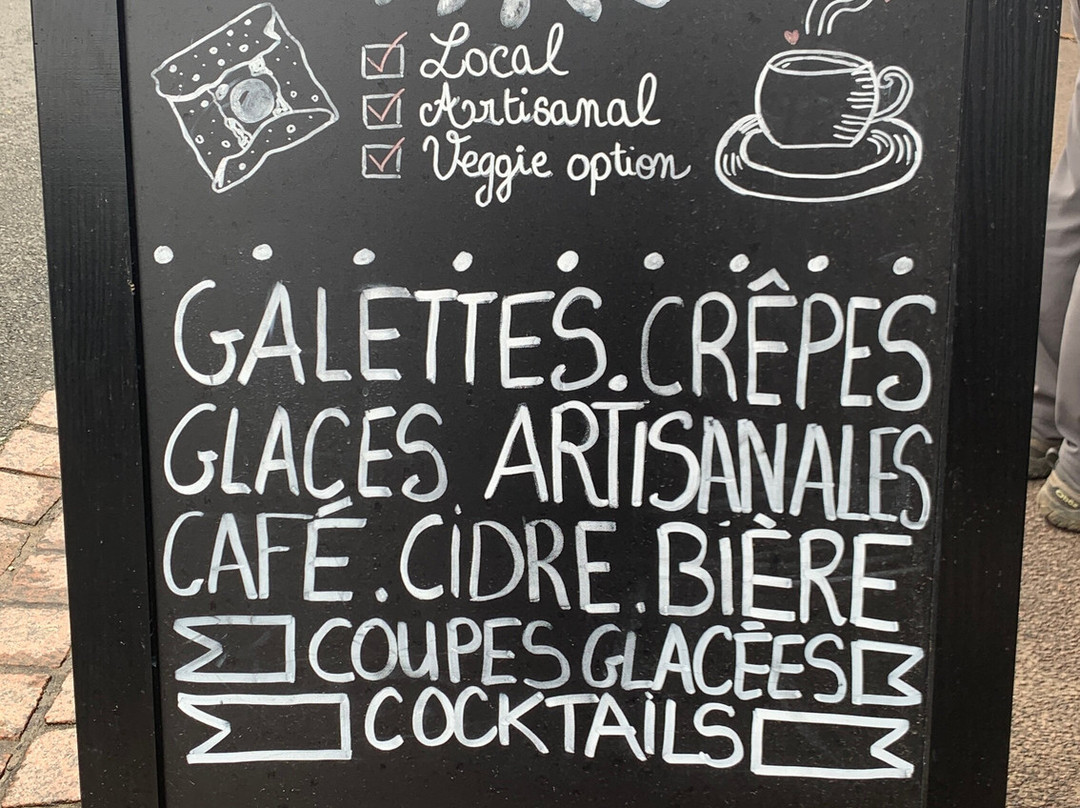 Local
Artisanal
Veggie option
GALETTES. CRÊPES
GLACES ARTISANALES
CAFÉ. CiDRE. BiÈRE
COUPES GLACÉES
COCKTAiLS